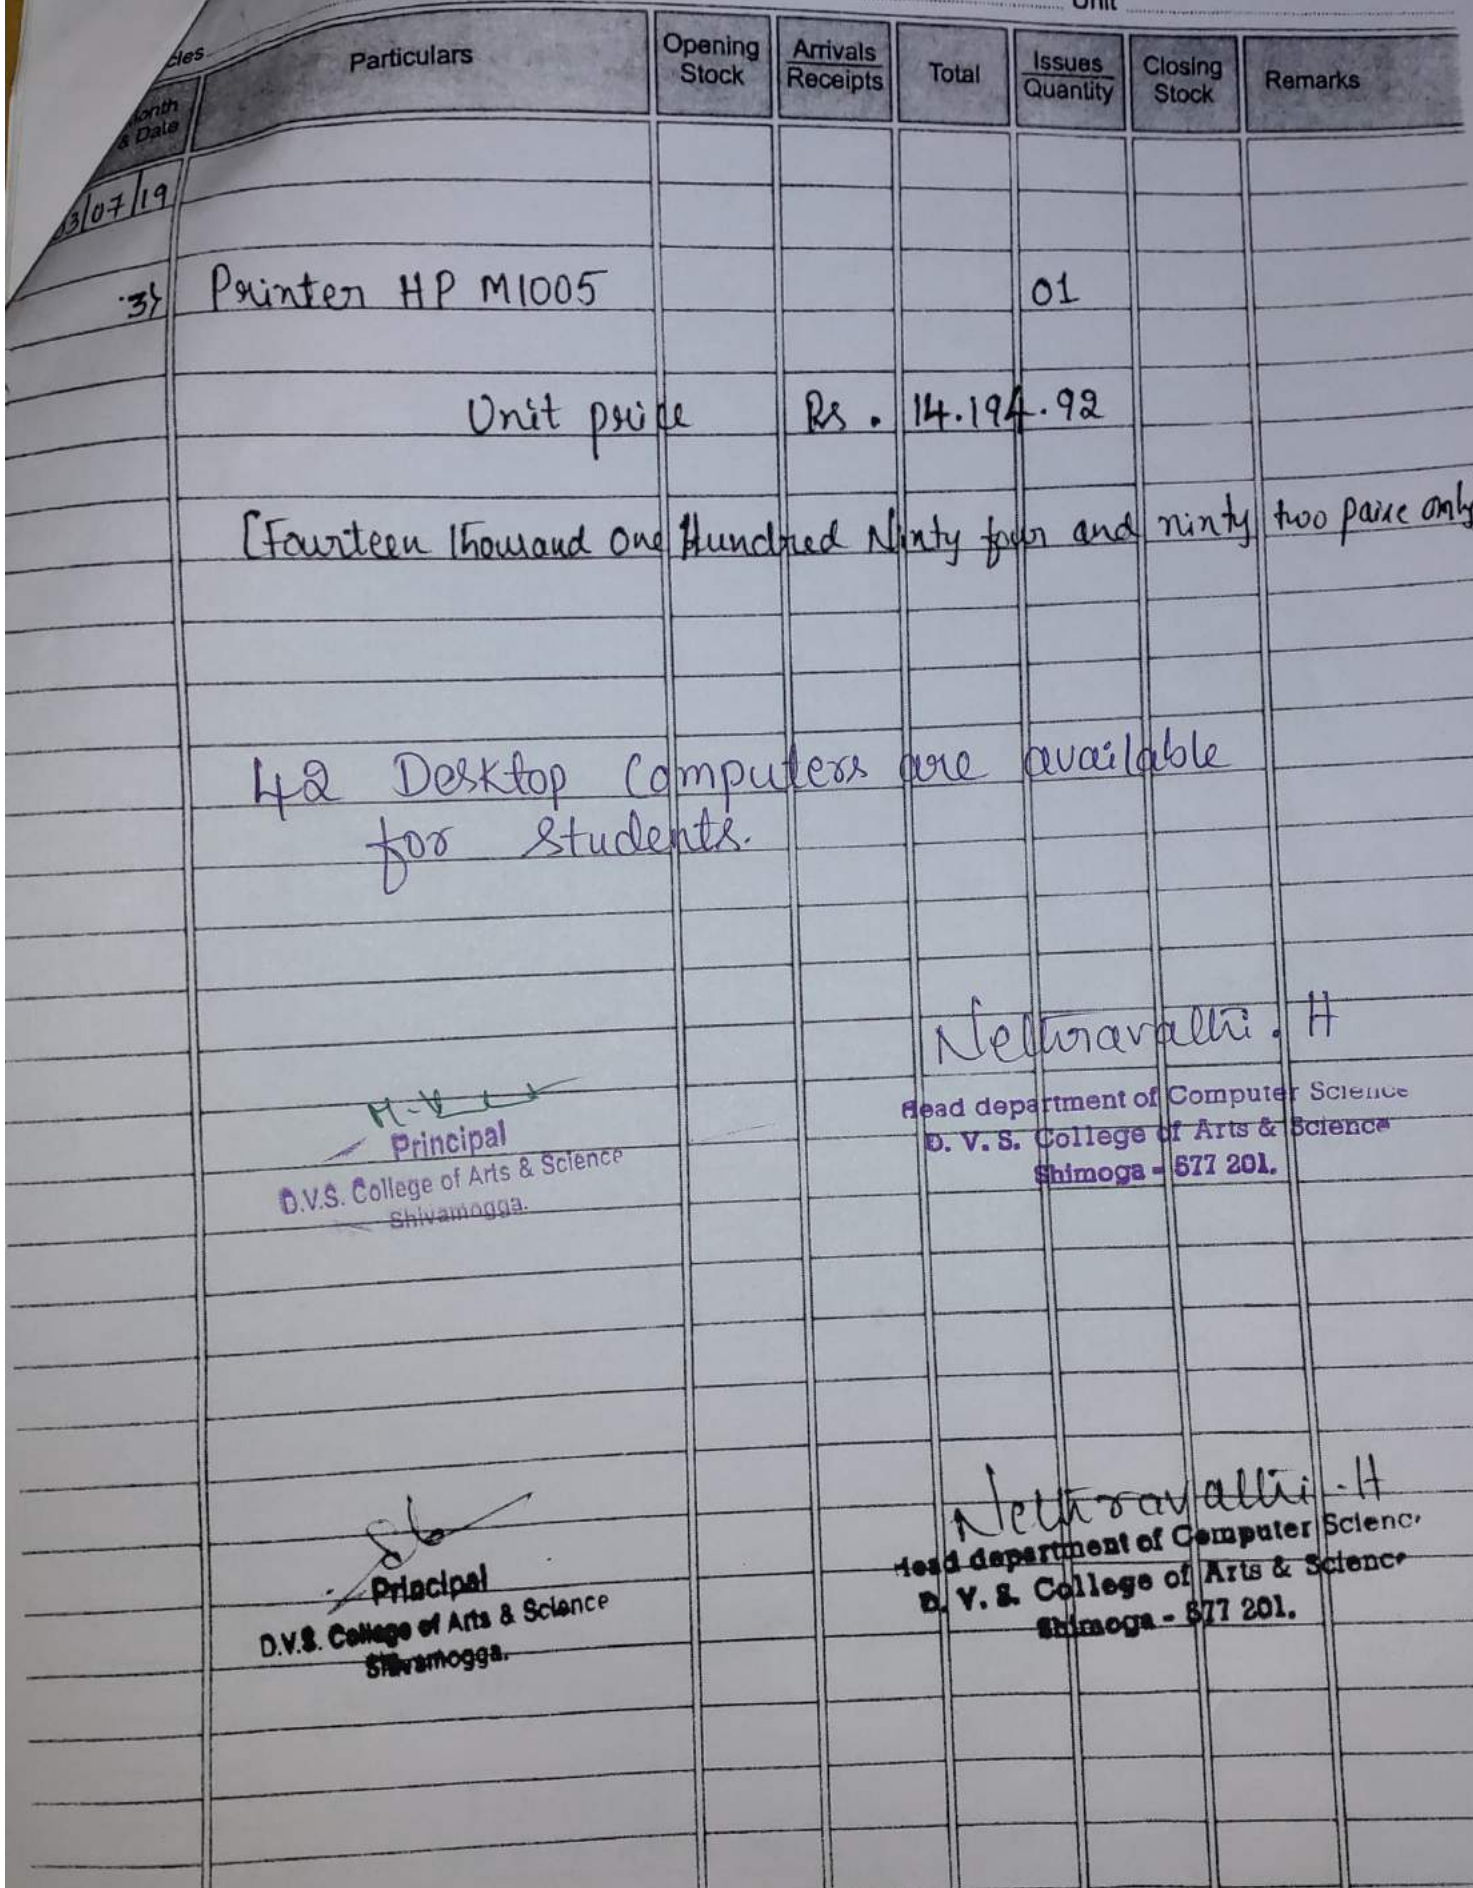 Unit
Particulars Opening Stock Arrivals Receipts Total Issues Quantity Closing Stock Remarks
& Date
3/07/19
3} Printer HP M1005 01
Unit price Rs . 14.194.92
[Fourteen Thousand One Hundred Ninty four and ninty two paise only
42 Desktop Computers are available
for students.
Nethravathi . H
Head department of Computer Science
D. V. S. College of Arts & Science
Shimoga - 577 201.
Principal
D.V.S. College of Arts & Science
Shivamogga.
Nethravathi . H
Head department of Computer Scienc
D. V. S. College of Arts & Science
Shimoga - 577 201.
Principal
D.V.S. College of Arts & Science
Shivamogga.